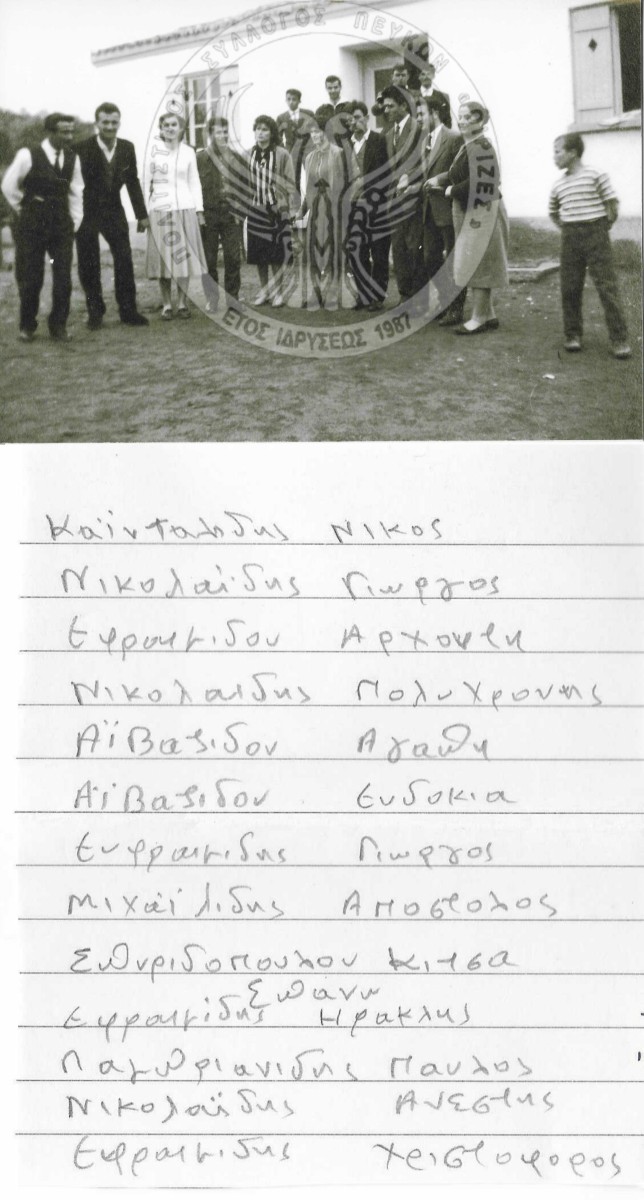 ΠΟΛΙΤΙΣΤΙΚΟΣ ΣΥΛΛΟΓΟΣ ΠΕΥΚΩΝ "ΟΙ ΡΙΖΕΣ"
ΕΤΟΣ ΙΔΡΥΣΕΩΣ 1987
Καϊνταλιδης Νικος
Νικολαϊδης Γιωργος
Εφραιμιδου Αρχοντη
Νικολαιδης Πολυχρονης
Αϊβαζιδου Αγαπη
Αϊβαζιδου Ευδοκια
Ευφραιμιδης Γιωργος
Μιχαϊλιδης Αποστολος
Σπυριδοπουλου Κιτσα
Επανω
Εφραιμίδης Ηρακλης
Παμπριανιδης Παυλος
Νικολαϊδης Ανεστης
Εφραιμιδης Χριστοφορος